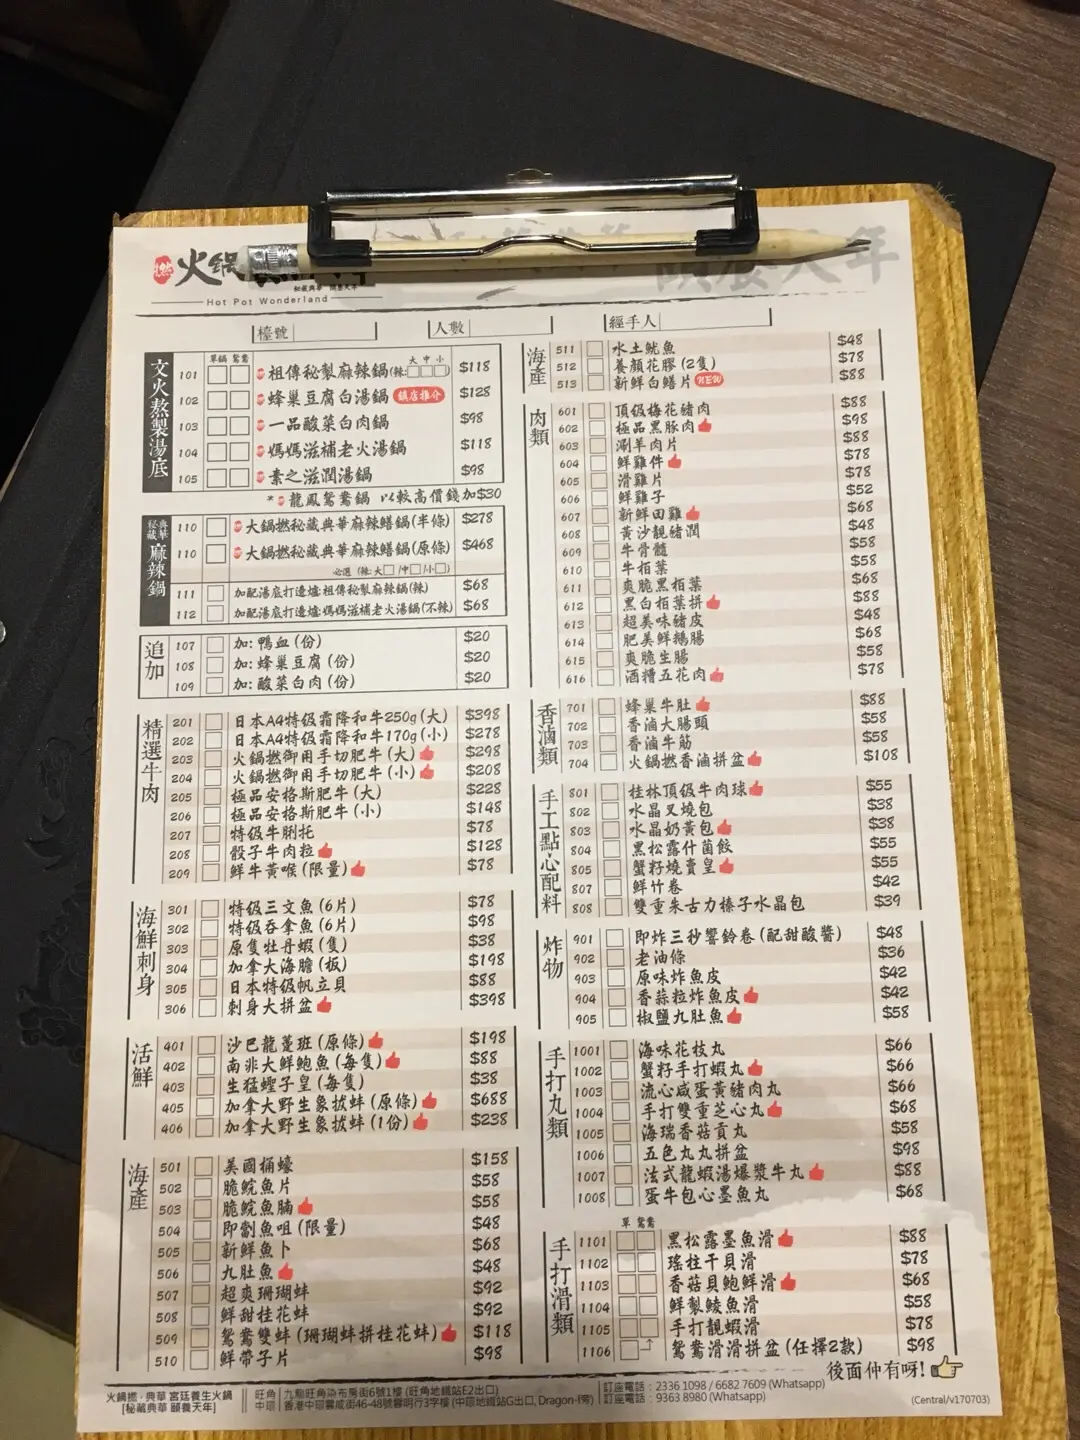 撚 火鍋
秘藏典華 頤養天年
Hot Pot Wonderland
頤養天年
檯號 人數 經手人
文火熬製湯底
單鍋 鴛鴦
大 中 小
101 祖傳秘製麻辣鍋(辣: $118
102 蜂巢豆腐白湯鍋 鎮店推介 $128
103 一品酸菜白肉鍋 $98
104 媽媽滋補老火湯鍋 $118
105 素之滋潤湯鍋 $98
* 龍鳳鴛鴦鍋 以較高價錢加$30
秘藏典華 麻辣鍋
110 大鍋撚秘藏典華麻辣鱔鍋(半條) $278
110 大鍋撚秘藏典華麻辣鱔鍋(原條) $468
必選 (辣:大□/中□/小□)
111 加配湯底打邊爐祖傳秘製麻辣鍋(辣) $68
112 加配湯底打邊爐媽媽滋補老火湯鍋(不辣) $68
追加
107 加: 鴨血 (份) $20
108 加: 蜂巢豆腐 (份) $20
109 加: 酸菜白肉 (份) $20
精選牛肉
201 日本A4特級霜降和牛250g(大) $398
202 日本A4特級霜降和牛170g(小) $278
203 火鍋撚御用手切肥牛 (大) $298
204 火鍋撚御用手切肥牛 (小) $208
205 極品安格斯肥牛 (大) $228
206 極品安格斯肥牛 (小) $148
207 特級牛脷托 $78
208 骰子牛肉粒 $128
209 鮮牛黃喉 (限量) $78
海鮮刺身
301 特級三文魚 (6片) $78
302 特級吞拿魚 (6片) $98
303 原隻牡丹蝦 (隻) $38
304 加拿大海膽 (板) $198
305 日本特級帆立貝 $88
306 刺身大拼盆 $398
活鮮
401 沙巴龍躉班 (原條) $198
402 南非大鮮鮑魚 (每隻) $88
403 生猛蟶子皇 (每隻) $38
405 加拿大野生象拔蚌 (原條) $688
406 加拿大野生象拔蚌 (1份) $238
海產
501 美國桶蠔 $158
502 脆鯇魚片 $58
503 脆鯇魚腩 $58
504 即劏魚咀 (限量) $48
505 新鮮魚卜 $68
506 九肚魚 $48
507 超爽珊瑚蚌 $92
508 鮮甜桂花蚌 $92
509 鴛鴦雙蚌 (珊瑚蚌拼桂花蚌) $118
510 鮮帶子片 $98
海產
511 水土魷魚 $48
512 養顏花膠 (2隻) $78
513 新鮮白鱔片 NEW $88
肉類
601 頂級梅花豬肉 $88
602 極品黑豚肉 $98
603 涮羊肉片 $88
604 鮮雞件 $78
605 滑雞片 $78
606 鮮雞子 $52
607 新鮮田雞 $68
608 黃沙靚豬潤 $48
609 牛骨髓 $58
610 牛柏葉 $58
611 爽脆黑柏葉 $68
612 黑白柏葉拼 $88
613 超美味豬皮 $48
614 肥美鮮鵝腸 $68
615 爽脆生腸 $58
616 酒糟五花肉 $78
香滷類
701 蜂巢牛肚 $88
702 香滷大腸頭 $58
703 香滷牛筋 $58
704 火鍋撚香滷拼盆 $108
手工點心配料
801 桂林頂級牛肉球 $55
802 水晶叉燒包 $38
803 水晶奶黃包 $38
804 黑松露什菌餃 $55
805 蟹籽燒賣皇 $55
807 鮮竹卷 $42
808 雙重朱古力榛子水晶包 $39
炸物
901 即炸三秒響鈴卷 (配甜酸醬) $48
902 老油條 $36
903 原味炸魚皮 $42
904 香蒜粒炸魚皮 $42
905 椒鹽九肚魚 $58
手打丸類
1001 海味花枝丸 $66
1002 蟹籽手打蝦丸 $66
1003 流心咸蛋黃豬肉丸 $66
1004 手打雙重芝心丸 $68
1005 海瑞香菇貢丸 $58
1006 五色丸丸拼盆 $98
1007 法式龍蝦湯爆漿牛丸 $88
1008 蛋牛包心墨魚丸 $68
手打滑類
單 鴛鴦
1101 黑松露墨魚滑 $88
1102 瑤柱干貝滑 $78
1103 香菇貝鮑鮮滑 $68
1104 鮮製鯪魚滑 $58
1105 手打靚蝦滑 $78
1106 鴛鴦滑滑拼盆 (任擇2款) $98
後面仲有呀!
火鍋撚·典華 宮廷養生火鍋
[秘藏典華 頤養天年]
旺角 九龍旺角染布房街6號1樓 (旺角地鐵站E2出口) 訂座電話 : 2336 1098 / 6682 7609 (Whatsapp)
中環 香港中環雲咸街46-48號雲明行3字樓 (中環地鐵站G出口, Dragon-i旁) 訂座電話 : 9363 8980 (Whatsapp)
(Central/v170703)